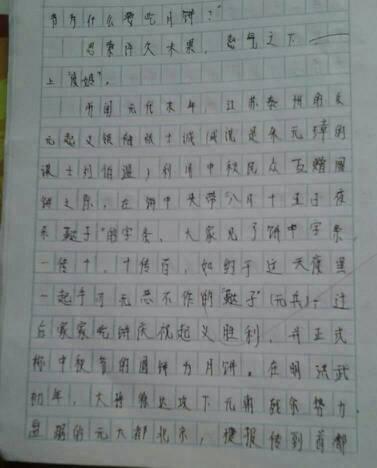 节为什么要吃月饼?"
思索许久未果,一气之下——
上"度娘"。
听闻元代末年,江苏泰州的反
元起义领袖张士诚(或说是朱元璋的
谋士刘伯温)利用中秋民众互赠圆
饼之际,在饼中夹带"八月十五子夜
杀鞑子"的字条,大家见了饼中字条
一传十,十传百,如约于这天夜里
一起手刃无恶不作的"鞑子"(元兵),过
后家家吃饼庆祝起义胜利,并正式
称中秋节的圆饼为月饼。在明洪武
初年,大将徐达攻下元朝残余势力
盘踞的元大都北京,捷报传到首都